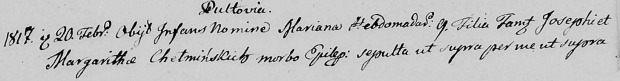 Pultovia.
1817. 20. Febr: Obijt Infans Nomine Mariana Hebdomadar: 9. Filia Fam: Josephi et
Margarithæ Chełmińskich morbo Epilep: sepulta ut supra per me ut supra